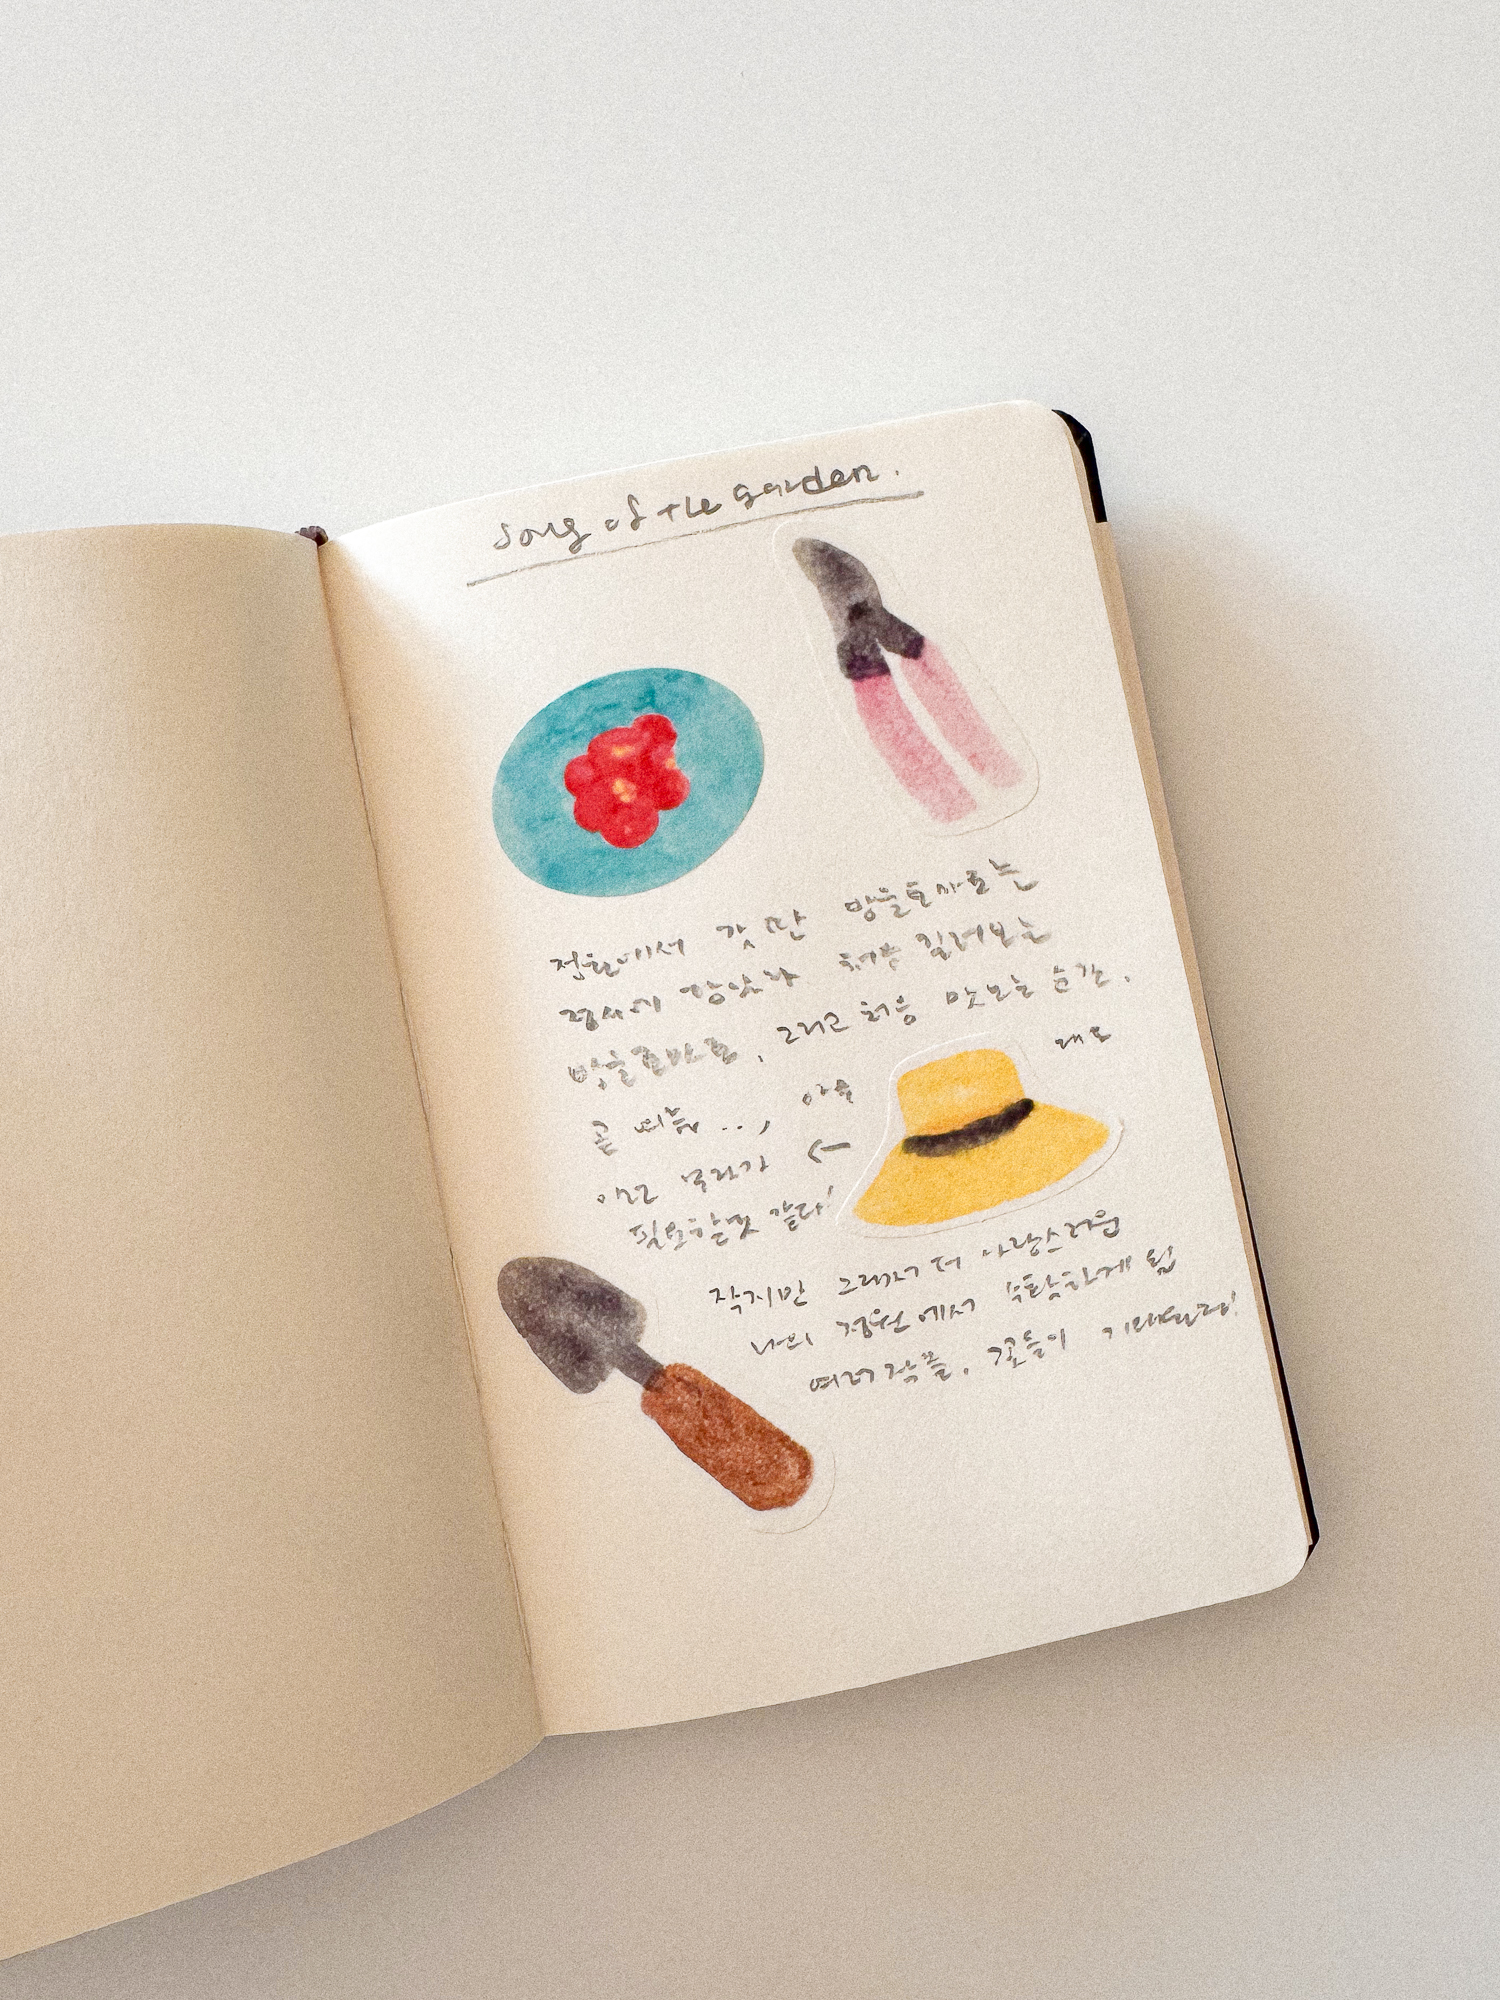 Song of the garden.
정원에서 갓 딴 방울토마토는
접시에 담았다 처음 길러보는
방울토마토, 그리고 처음 맛보는 순간.
때로
곧 여름 ..., 아주
이런 모자가 ←
필요할것 같다
작지만 그래서 더 사랑스러운
나의 정원에서 수확하게 될
여러 작물, 꽃들이 기대된다